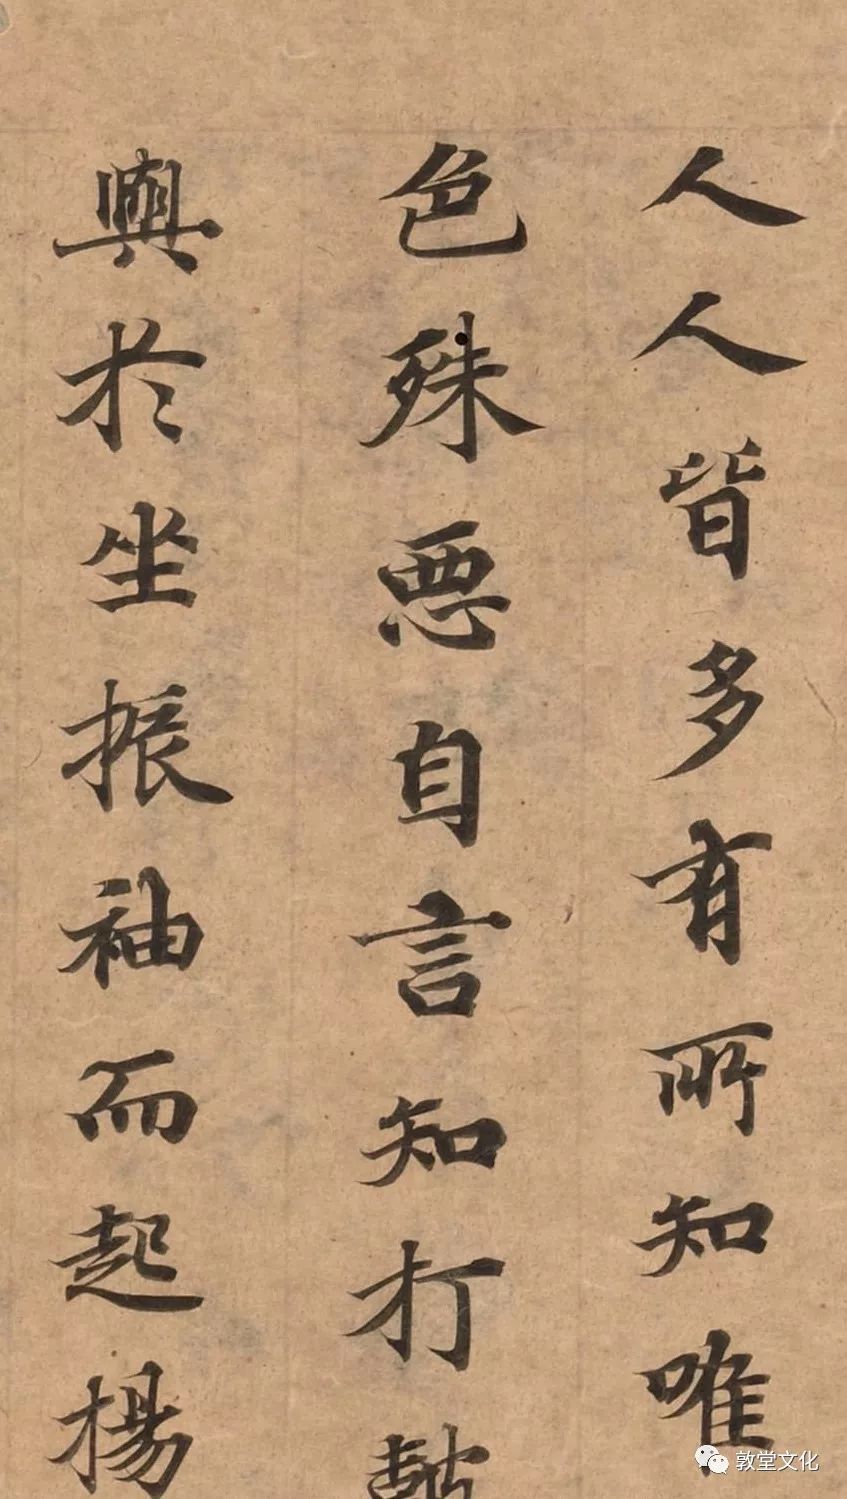 人人皆多有所知唯
色殊惡自言知打鼓
輿於坐振袖而起揚
敦堂文化